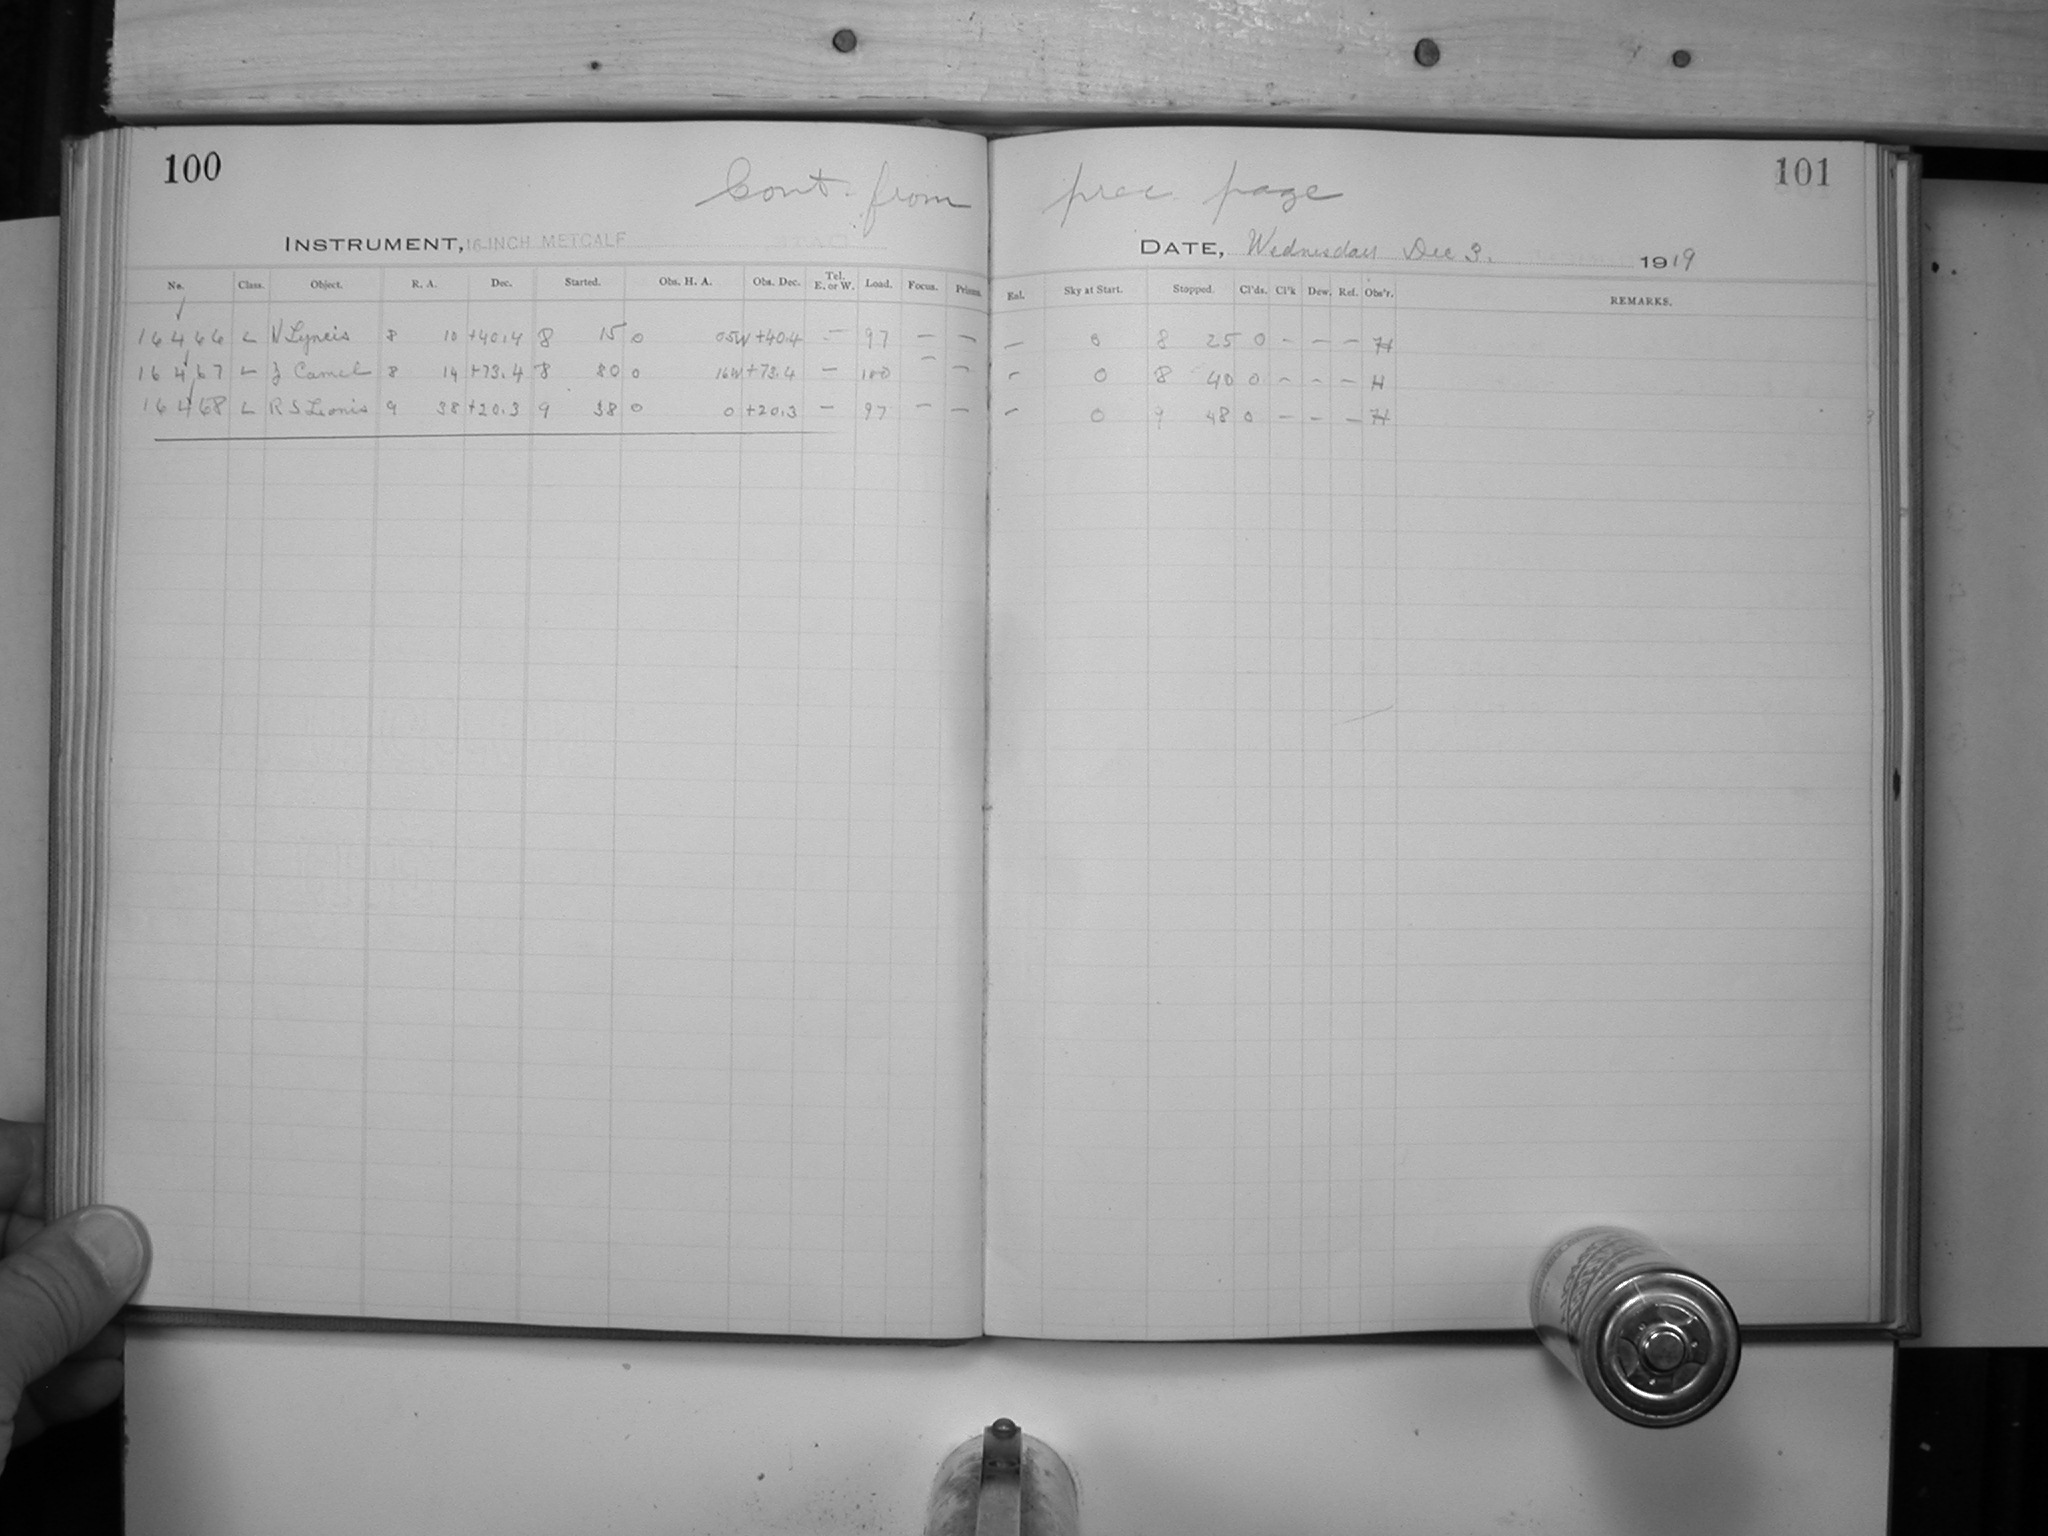 100
101
Cont. from prec. page
INSTRUMENT, 16-INCH METCALF
DATE, Wednesday Dec 3. 1919
No. Class. Object. R. A. Dec. Started. Obs. H. A. Obs. Dec. Tel. E. or W. Load. Focus. Prisms. Eal. Sky at Start. Stopped. Cl'ds. Cl'k Dew. Ref. Obs'r. REMARKS.
16466 L Lyncis 8 10 +40.4 8 15 0 05W +40.4 — 97 — — — 0 8 25 0 – – – H
16467 L Z Camel 8 14 +73.4 8 30 0 16W +73.4 — 100 — — – 0 8 40 0 – – – H
16468 L RS Leonis 9 38 +20.3 9 38 0 0 +20.3 – 97 – – – 0 9 48 0 – – – H